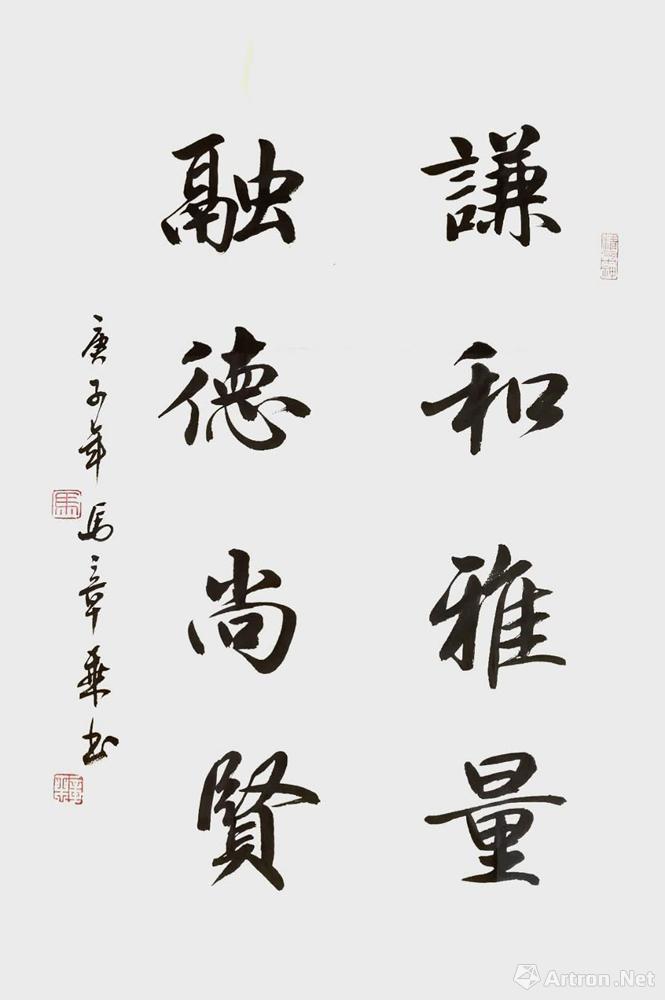 謙和雅量
融德尚賢
庚子年馬章乘书
馬
Artron.Net